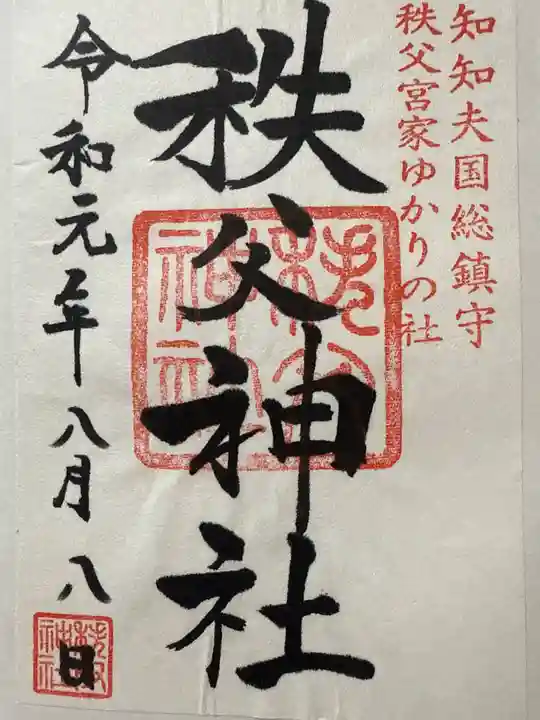 知知夫国総鎮守
秩父宮家ゆかりの社
秩父神社
秩父神社
令和元年八月八日
秩父神社